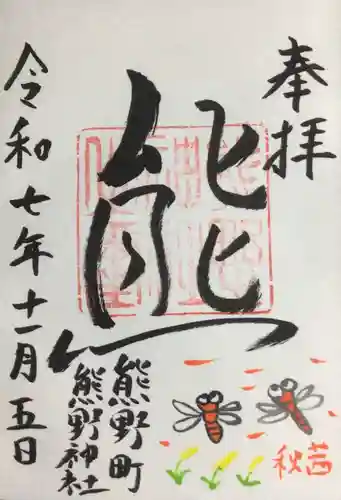 奉拝
熊
熊野町
熊野神社
令和七年十一月五日
秋
茜